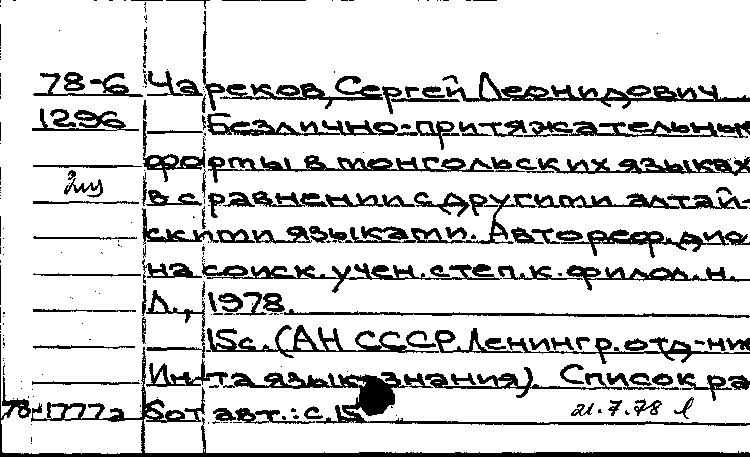 78-6 Чареков, Сергей Леонидович
1296 Безлично-притяжательные
формы в монгольских языках
в сравнении с другими алтай-
скими языками. Автореф. дис
на соиск. учен. степ. к. филол. н.
Л., 1978.
15с. (АН СССР. Ленингр. отд-ние
Ин-та языкознания). Список ра
78-17772 бот авт.: с. 15
21.7.78